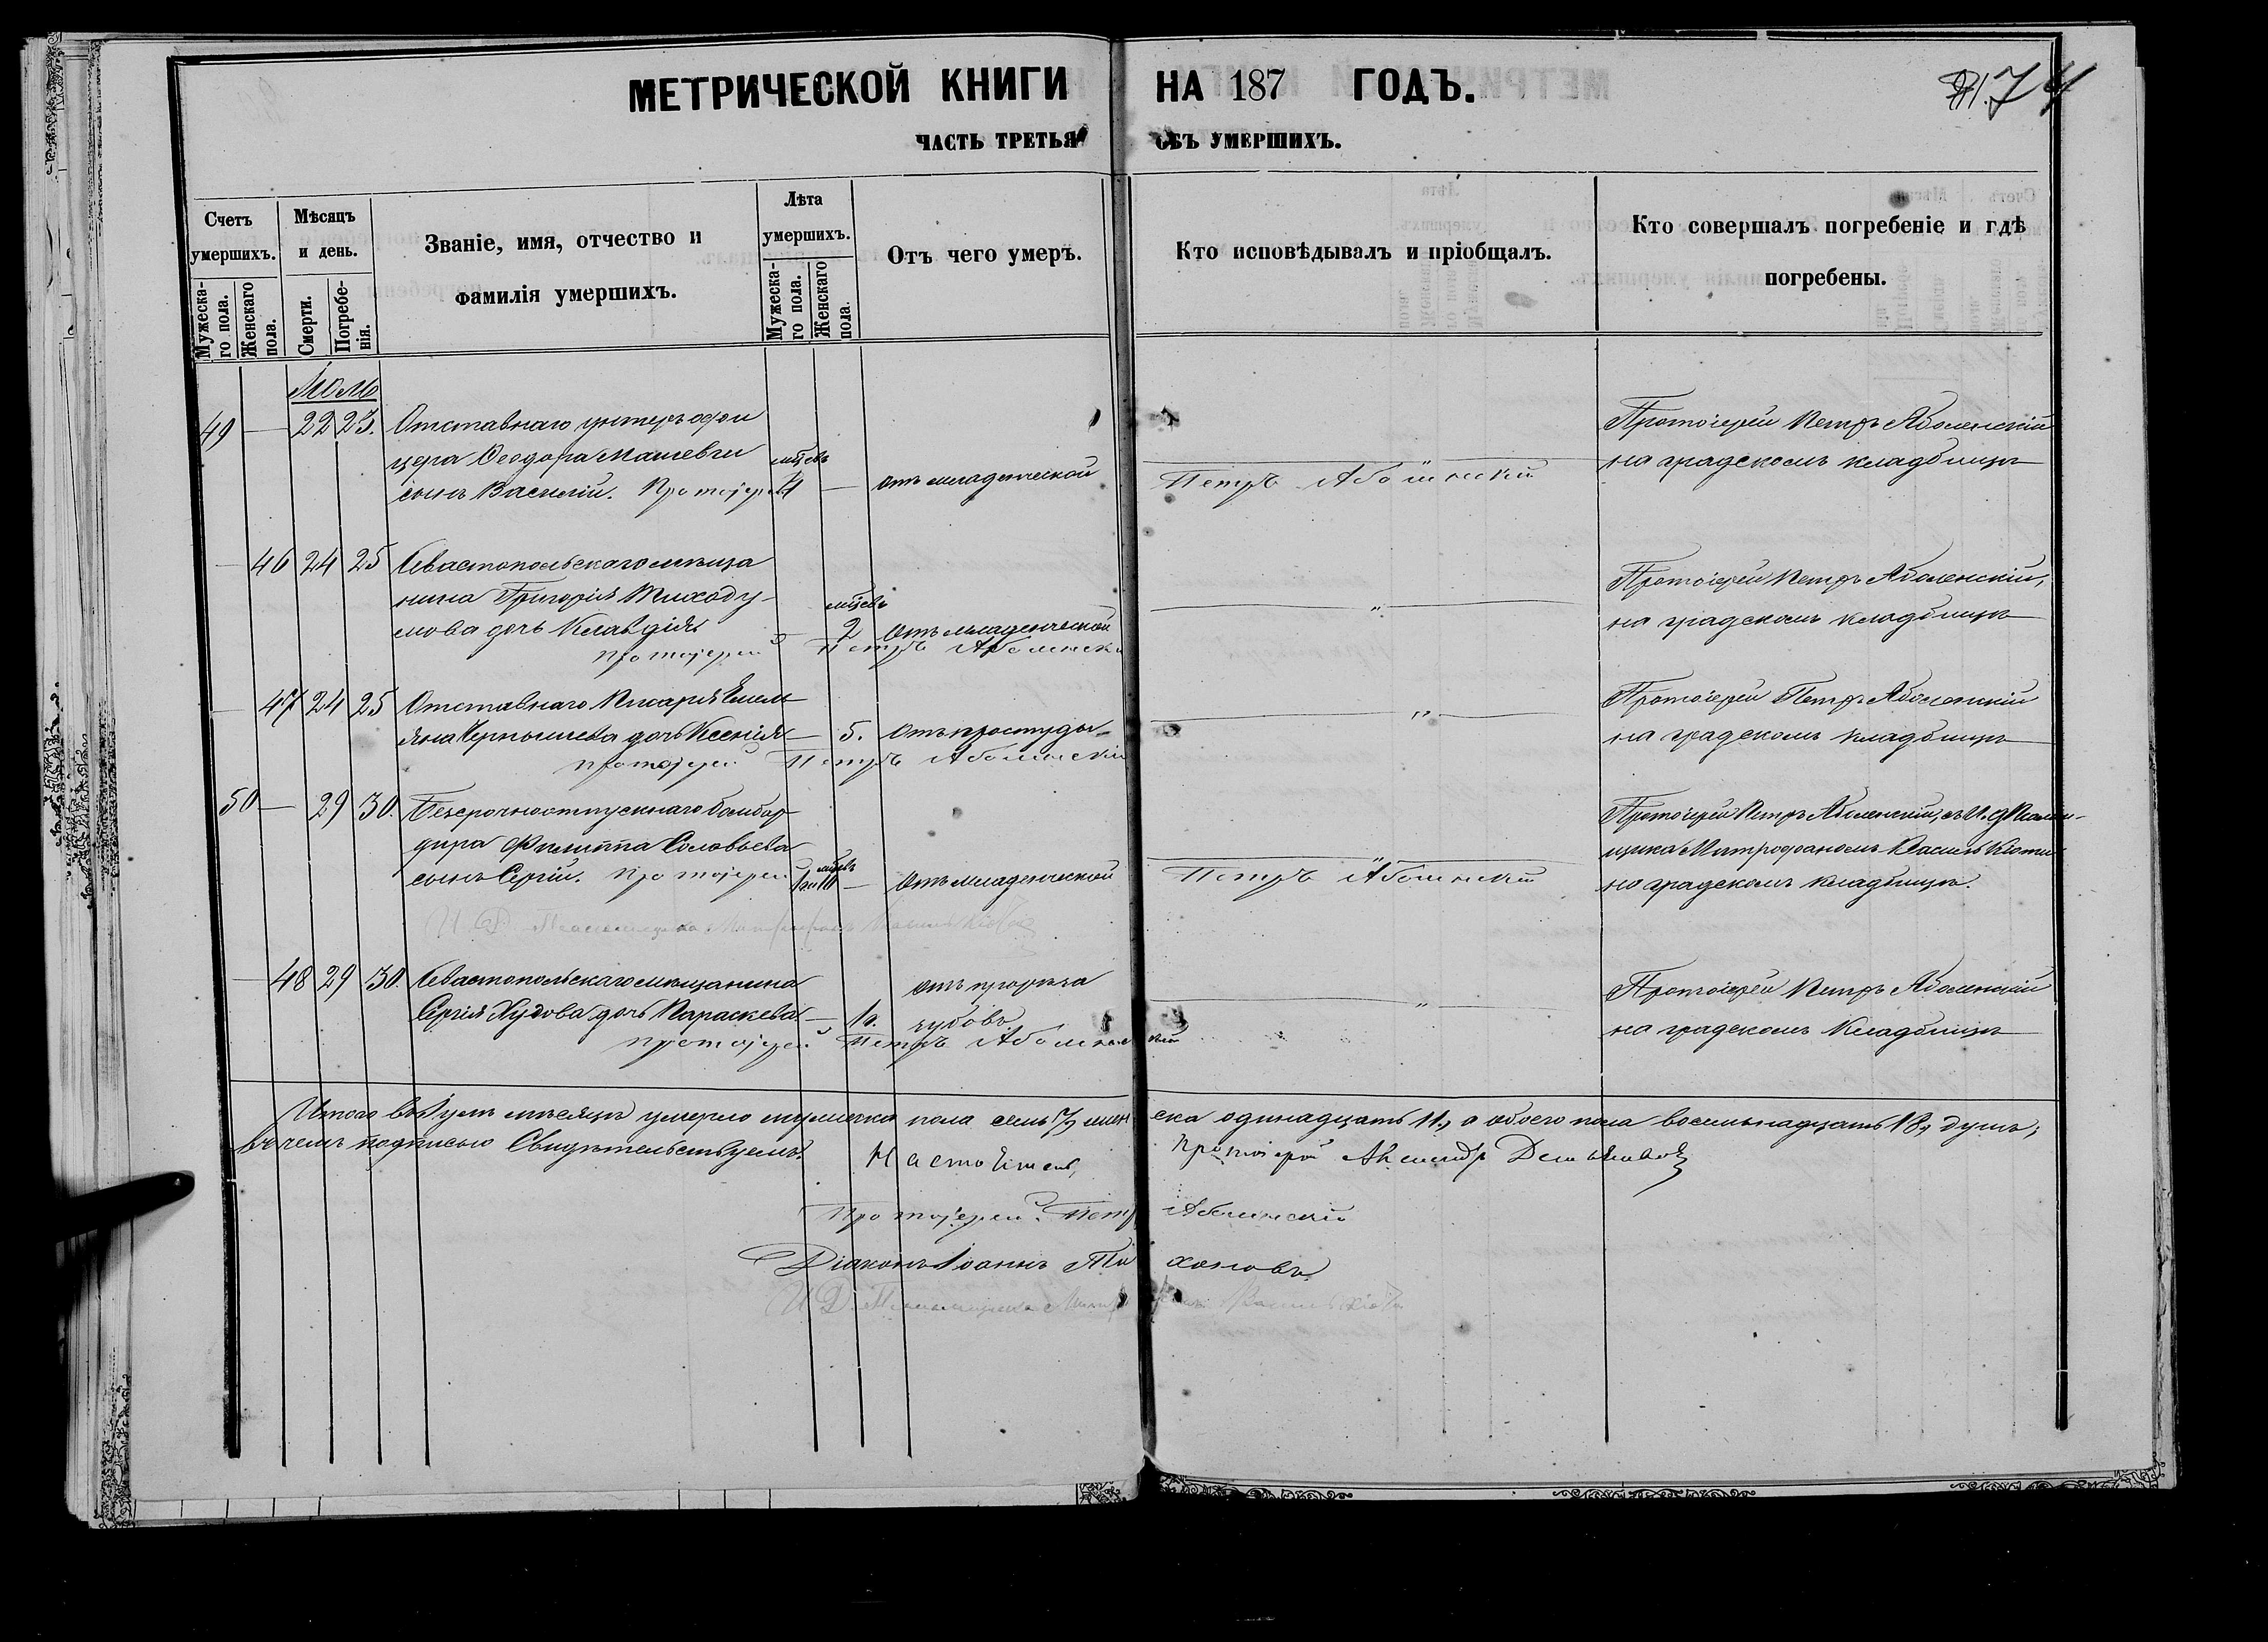 МЕТРИЧЕСКОЙ КНИГИ НА 187 ГОДЪ.
74
ЧАСТЬ ТРЕТЬЯ ОБЪ УМЕРШИХЪ.
Счетъ умершихъ.
Мужескаго пола.
Женскаго пола.
Мѣсяцъ и день.
Смерти.
Погребенія.
Званіе, имя, отчество и
фамилія умершихъ.
Лѣта умершихъ.
Мужескаго пола.
Женскаго пола.
Отъ чего умеръ.
Кто исповѣдывалъ и пріобщалъ.
Кто совершалъ погребеніе и гдѣ
погребены.
Іюль
49 — 22 23. Отставнаго унтеръ офи
цера Ѳеодора
сынъ Василій. Протоіерей
мѣцевъ
4 — отъ младенческой
Петръ Аболенскій
Протоіерей Петръ Аболенскій
на градскомъ кладбищѣ
— 46 24 25 Севастопольскаго мѣща
нина Григорія
мова дочь Клавдія
мѣцевъ
— 2 Отъ младенческой
протоіерей Петръ Аболенскі
"
Протоіерей Петръ Аболенскій,
на градскомъ кладбищѣ
— 47 24 25 Отставнаго Писаря Емель
яна Чернышева дочь Ксенія — 5. Отъ простуды
протоіерей Петръ Аболенскій
"
Протоіерей Петръ Аболенскій
на градскомъ кладбищѣ
50 — 29 30. Безсрочноотпускнаго бомбар
дира Филиппа Соловьева
сынъ Сергій. Протоіерей
мѣцевъ
— Отъ младенческой
И. Д. Псаломщика Митрофанъ
"
Петръ Аболенскій
Протоіерей Петръ Аболенскій, съ И. д Псалом-
щика Митрофаномъ
на градскомъ кладбищѣ.
— 48 29 30. Севастопольскаго мѣщанина
Сергія Худова дочь Параскева — 1г.
отъ прорѣза
зубовъ
протоіерей Петръ Аболенскій
"
Протоіерей Петръ Аболенскій
на градскомъ Кладбищѣ
Итого въ Іулѣ мѣсяцѣ умерло мужеска пола семь 7, женска одинадцать 11, а обоего пола восемьнадцать 18, душъ;
въ чемъ подписью Свидѣтельствуемъ.
Настоятель, Протоіерей
Протоіерей Петръ Аболенскій
Діаконъ Іоаннъ Тихоновъ
И Д. Псаломщика